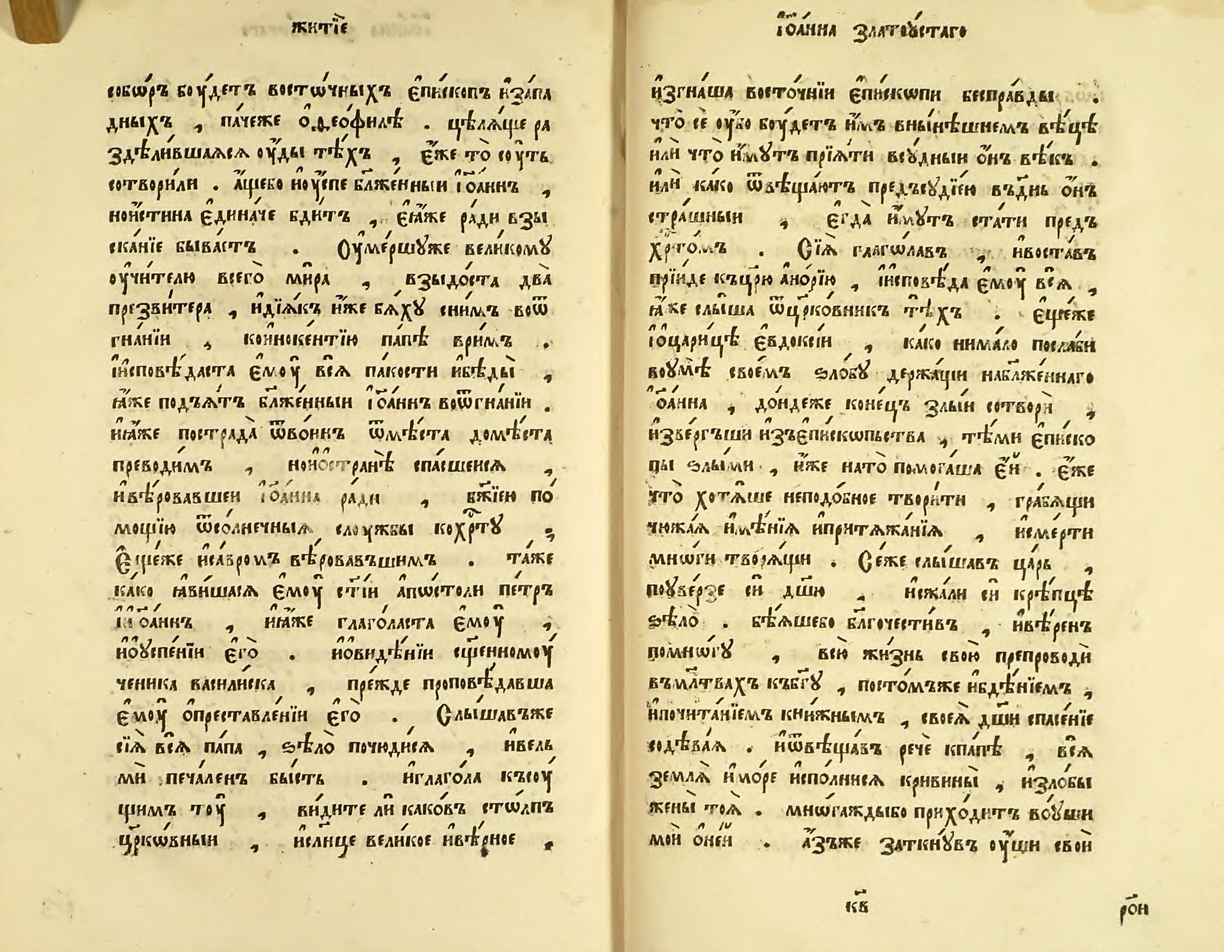 житїе
собѡ́ръ бꙋ́детъ востѡ́чныхъ є҆пи́скопъ и҆за́па
дныхъ , па́чеже ѻ҆ѳео́филѣ . цѣлѧ́ще ра
здѣли́вшаѧсѧ оу҆́ды тѣ́хъ , є҆́же то̀ сꙋ́ть
сотвори́ли . а҆́щебо и҆оу҆́спе бл҃же́нныи і҆ѡа́ннъ ,
нои҆́стина є҆дина́че бди́тъ , є҆ѧ́же ра́ди взы
ска́нїе быва́етъ . Оу҆ме́ршꙋже вели́комꙋ
оу҆чи́телю всего̀ ми́ра , взыдо́ста два̀
презви́тера , и҆дїѧ́къ и҆̀же бѧ́хꙋ сни́мъ воѿ
гна́нїи , кои҆ноке́нтїю па́пѣ ври́мъ .
и҆исповѣ́даста є҆мꙋ̀ всѧ̀ па́кости и҆бѣды̀ ,
ꙗ҆́же подъѧ́тъ бл҃же́нныи і҆ѡа́ннъ воѿгна́нїи .
и҆ꙗ҆́же пострада̀ ѿво́инъ ѿмѣ́ста домѣ́ста
преводи́мъ , нои҆ѻ҆странѣ̀ спа́сшеисѧ ,
и҆вѣ́ровавшеи і҆ѡа́нна ра́ди , бж҃їею по́
мощїю ѿсо́лнечныѧ слꙋ́жбы кохр҃тꙋ̀ ,
Є҆ще́же и҆са́вромъ вѣ́ровавъшимъ . та́же
ка́ко ꙗ҆ви́шасѧ є҆мꙋ̀ ст҃і́и а҆пѡ́столи пе́тръ
и҆і҆ѡа́ннъ , и҆ꙗ҆́же глаго́ласта є҆мꙋ̀ ,
и҆ѻ҆оу҆спе́нїи є҆гѡ̀ . и҆ѻ҆видѣ́нїи сщ҃е́нномꙋ
ченика васили́ска , пре́жде проповѣ́давша
є҆мꙋ̀ ѻ҆преставле́нїи є҆гѡ̀ . Слы́шавъже
сїѧ̀ всѧ̀ па́па , ѕѣлѡ̀ почюди́сѧ , и҆вель
мѝ печа́ленъ бы́сть . и҆глаго́ла късꙋ́
щимъ тꙋ̀ , ви́дите лѝ како́въ сто́лпъ
цр҃кѡ́вныи , и҆слн҃це вели́кое и҆вѣ́рное ,
і҆ѡа́нна златоꙋ́стаго
и҆згна́ша восто́чнїи є҆пи́скѡпи беспра́вды .
что̀ сѐ оу҆́бо бꙋ́детъ и҆́мъ вны́нѣшнемъ вѣ́цѣ
и҆лѝ что̀ и҆́мꙋтъ прїѧ́ти всꙋ́дныи ѻ҆́нъ вѣ́къ .
и҆лѝ ка́ко ѿвѣща́ютъ предъсꙋдїе́ю въдн҃ь ѻ҆́нъ
стра́шныи , є҆гда̀ и҆́мꙋтъ ста́ти предъ
хр҃то́мъ . Сїѧ̀ глаго́лавъ , и҆воста́въ
прїи́де къцр҃ю̀ а҆но́рїю , и҆исповѣ́да є҆мꙋ̀ всѧ̀ ,
ꙗ҆́же слы́ша ѿцр҃ко́вникъ тѣ́хъ . Є҆ще́же
і҆ѻ҆цари́цѣ є҆вдоксі́и , ка́ко нима́ло посла́би
воꙋмѣ̀ свое́мъ ѕло́бꙋ держа́щи набл҃же́ннаго
і҆ѡа́нна , до́ндеже коне́цъ злы́и сотворѝ ,
и҆зве́ргъши и҆зъє҆пи́скѡпьства , тѣ́ми є҆пи́ско
пы ѕлы́ми , и҆̀же нато̀ помога́ша є҆́и . є҆́же
что̀ хотѧ́ше неподо́бное твори́ти , гра́бѧщи
чюжа́ѧ и҆мѣ́нїѧ и҆притѧжа́нїѧ , и҆сме́рти
мнѡ́ги творѧ́щи . Се́же слы́шавъ ца́рь ,
поуве́рзе сѝ дш҃ю , и҆сжа́ли сѝ крѣ́пцѣ
ѕѣлѡ̀ . бѣѧ́шебо бл҃гочести́въ , и҆вѣ́ренъ
помнѡ́гꙋ , всю̀ жи́знь свою̀ препроводѝ
въмл҃твахъ къбг҃ꙋ , посто́мъже и҆бдѣ́нїемъ ,
и҆почита́нїемъ кни́жнымъ , своеѧ̀ дш҃и спасе́нїе
содѣ́ваѧ . и҆ѿвѣща́въ речѐ кпа́пѣ , всѧ̀
землѧ̀ и҆мо́ре и҆спо́лнисѧ кривины̀ , и҆зло́бы
жены̀ тоѧ̀ . мнѡ́гаждыбо прихо́дитъ воꙋ́ши
моѝ ѻ҆не́и . а҆́зъже заткнꙋ́въ оу҆́ши своѝ
к҃в
ро҃и